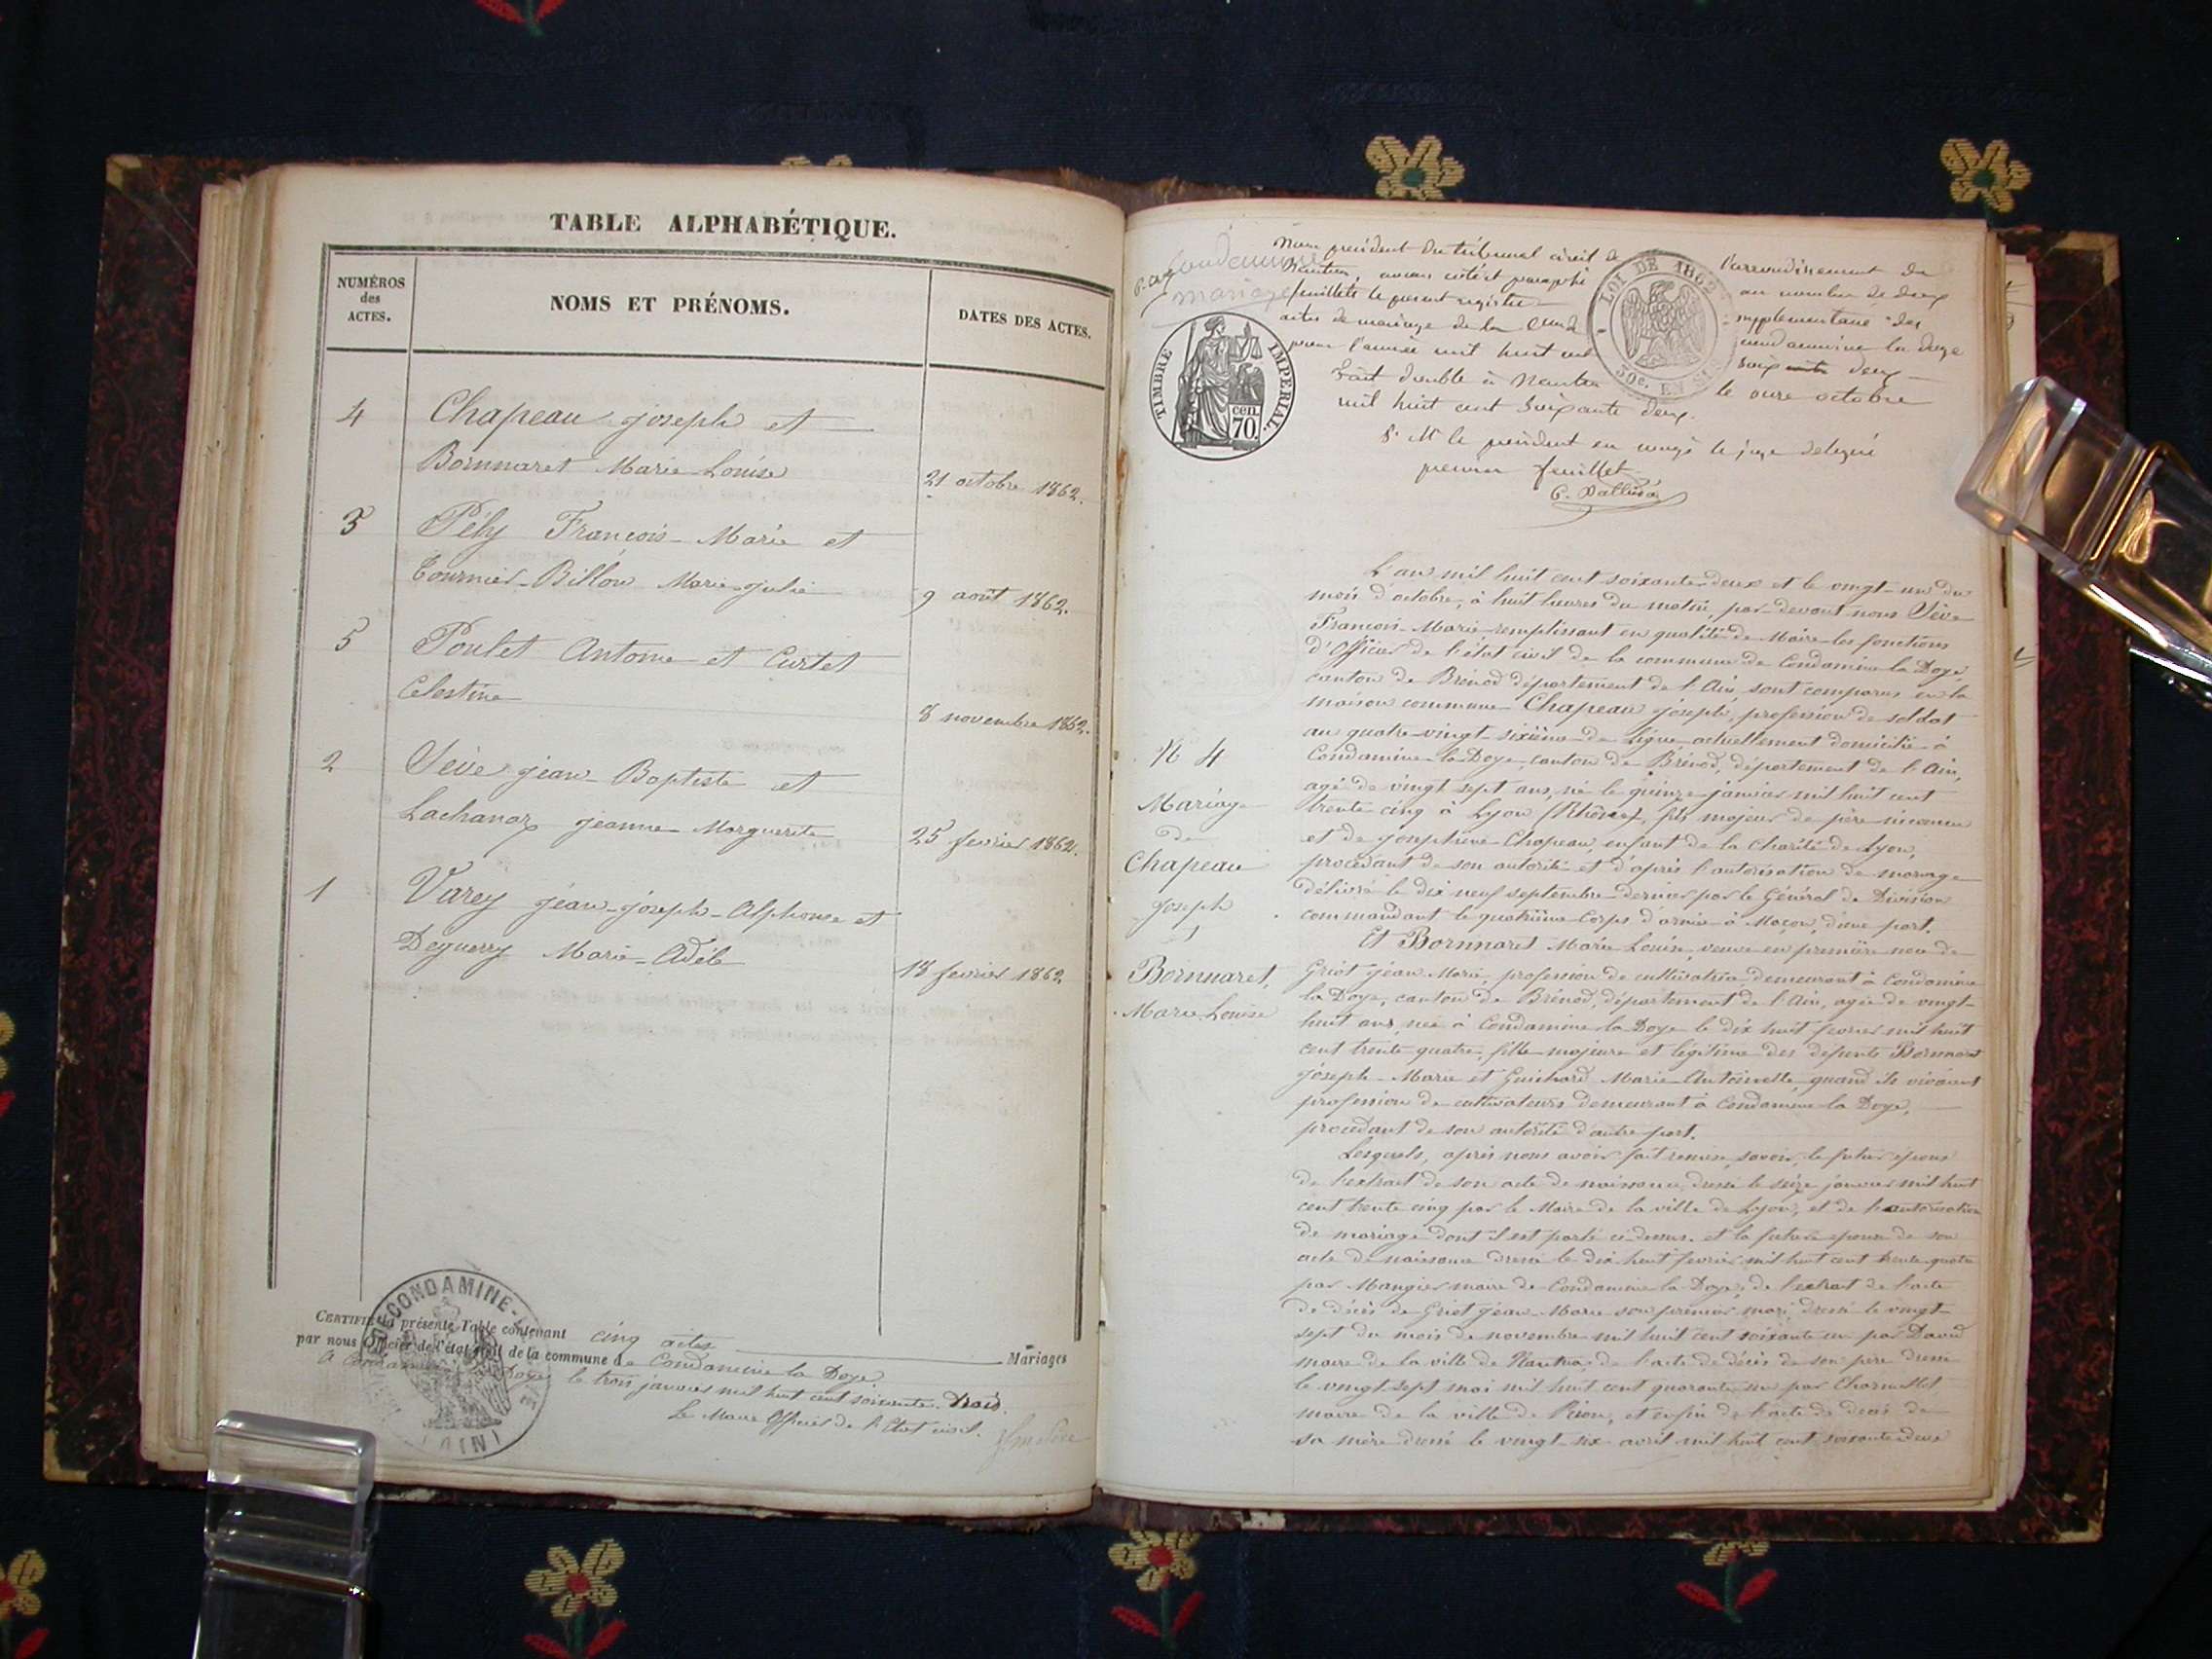 TABLE ALPHABÉTIQUE.
NUMÉROS
des
ACTES.
NOMS ET PRÉNOMS.
DATES DES ACTES.
4 Chapeau joseph et
Bornnaret Marie-Louise 21 octobre 1862.
3 Pély François-Marie et
Tournier-Billon Marie-julie 9 août 1862.
5 Poulet Antoine et Curtet
Celestine 8 novembre 1862.
2 Sève jean-Baptiste et
Lachanaz jeanne-Marguerite 25 fevrier 1862.
1 Varey jean-joseph-Alphonse et
Deguerry Marie-Adèle 18 fevrier 1862.
CERTIFIÉ la présente Table contenant cinq actes Mariages
par nous Officier de l'état civil de la commune de Condamine la Doye.
A Condamine la Doye le trois janvier mil huit cent soixante trois.
Le Maire Officier de l'Etat civil.
DE CONDAMINE-
(AIN)
Condamine
mariage
Nous président du tribunal civil de l'arrondissement de
Nantua, avons coté et paraphé au nombre de deux
feuillets le present registre supplementaire des
actes de mariage de la Condamine la doye
pour l'année mil huit cent soix deux
Fait double à Nantua le onze octobre
mil huit cent soixante deux.
Mr le président en congé le juge délégué
premier feuillet
LOI DE 1862
50c. EN SUS
TIMBRE IMPERIAL.
cen.
70.
L'an mil huit cent soixante-deux et le vingt-un du
mois d'octobre, à huit heures du matin, par-devant nous Sève
François-Marie remplissant en qualité de Maire les fonctions
d'Officier de l'état civil de la commune de Condamine la Doye,
canton de Brénod département de l'Ain, sont comparus en la
maison commune Chapeau joseph, profession de soldat
au quatre-vingt-sixième de ligne actuellement domicilié à
Condamine-la-Doye, canton de Brénod, département de l'Ain,
agé de vingt sept ans, né le quinze janvier mil huit cent
trente cinq à Lyon (Rhône), fils majeur de père inconnu
et de joséphine Chapeau, enfant de la Charité de Lyon,
procédant de son autorité et d'après l'autorisation de mariage
délivré le dix neuf septembre dernier par le Général de Division
commandant le quatrième Corps d'armée à Macon, d'une part.
N 4
Mariage
de
Chapeau
Joseph
Bornnaret,
Marie-Louise
Et Bornnaret Marie Louise, veuve en première noce de
Griot jean Marie, profession de cultivatrice demeurant à Condamine
la Doye, canton de Brénod, département de l'Ain, agée de vingt-
huit ans, née à Condamine-la-Doye le dix huit fevrier mil huit
cent trente quatre, fille majeure et légitime des défunts Bornnaret
joseph-Marie et Guichard Marie-Antoinette, quand ils vivaient
profession de cultivateurs demeurant à Condamine la Doye,
procédant de son autorité d'autre part.
Lesquels, après nous avoir fait remise, savoir, le futur époux
de l'extrait de son acte de naissance, dressé le seize janvier mil huit
cent trente cinq par le Maire de la ville de Lyon, et de l'autorisation
de mariage dont il est parlé ci-dessus. et la future épouse de son
acte de naissance dressé le dix huit fevrier mil huit cent trente quatre
par Mangier maire de Condamine la Doye, de l'extrait de l'acte
de décès de Griot jean-Marie son premier mari dressé le vingt-
sept du mois de novembre mil huit cent soixante un par David
maire de la ville de Nantua de l'acte de décès de son père dressé
le vingt-sept mai mil huit cent quarante un par
maire de la ville de et enfin de l'acte de décès de
sa mère dressé le vingt-six avril mil huit cent soixante deux